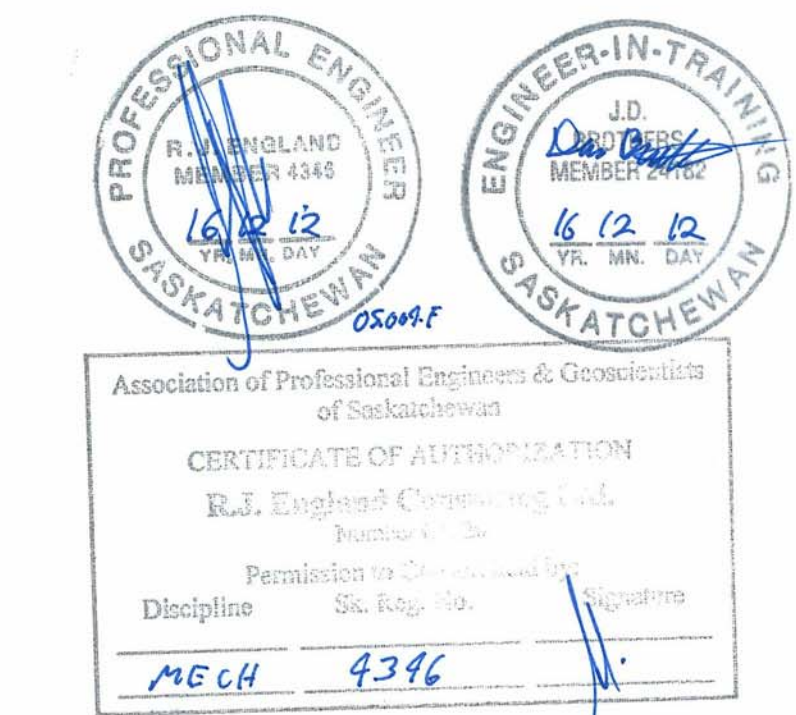 PROFESSIONAL ENGINEER
R.J. ENGLAND
MEMBER 4346
16 12 12
YR. MN. DAY
SASKATCHEWAN
ENGINEER-IN-TRAINING
J.D.
BROTHERS
MEMBER 24162
16 12 12
YR. MN. DAY
SASKATCHEWAN
05.009.F
Association of Professional Engineers & Geoscientists
of Saskatchewan
CERTIFICATE OF AUTHORIZATION
R.J. England Consulting Ltd.
Number
Permission to Consult held by:
Discipline Sk. Reg. No. Signature
MECH 4346